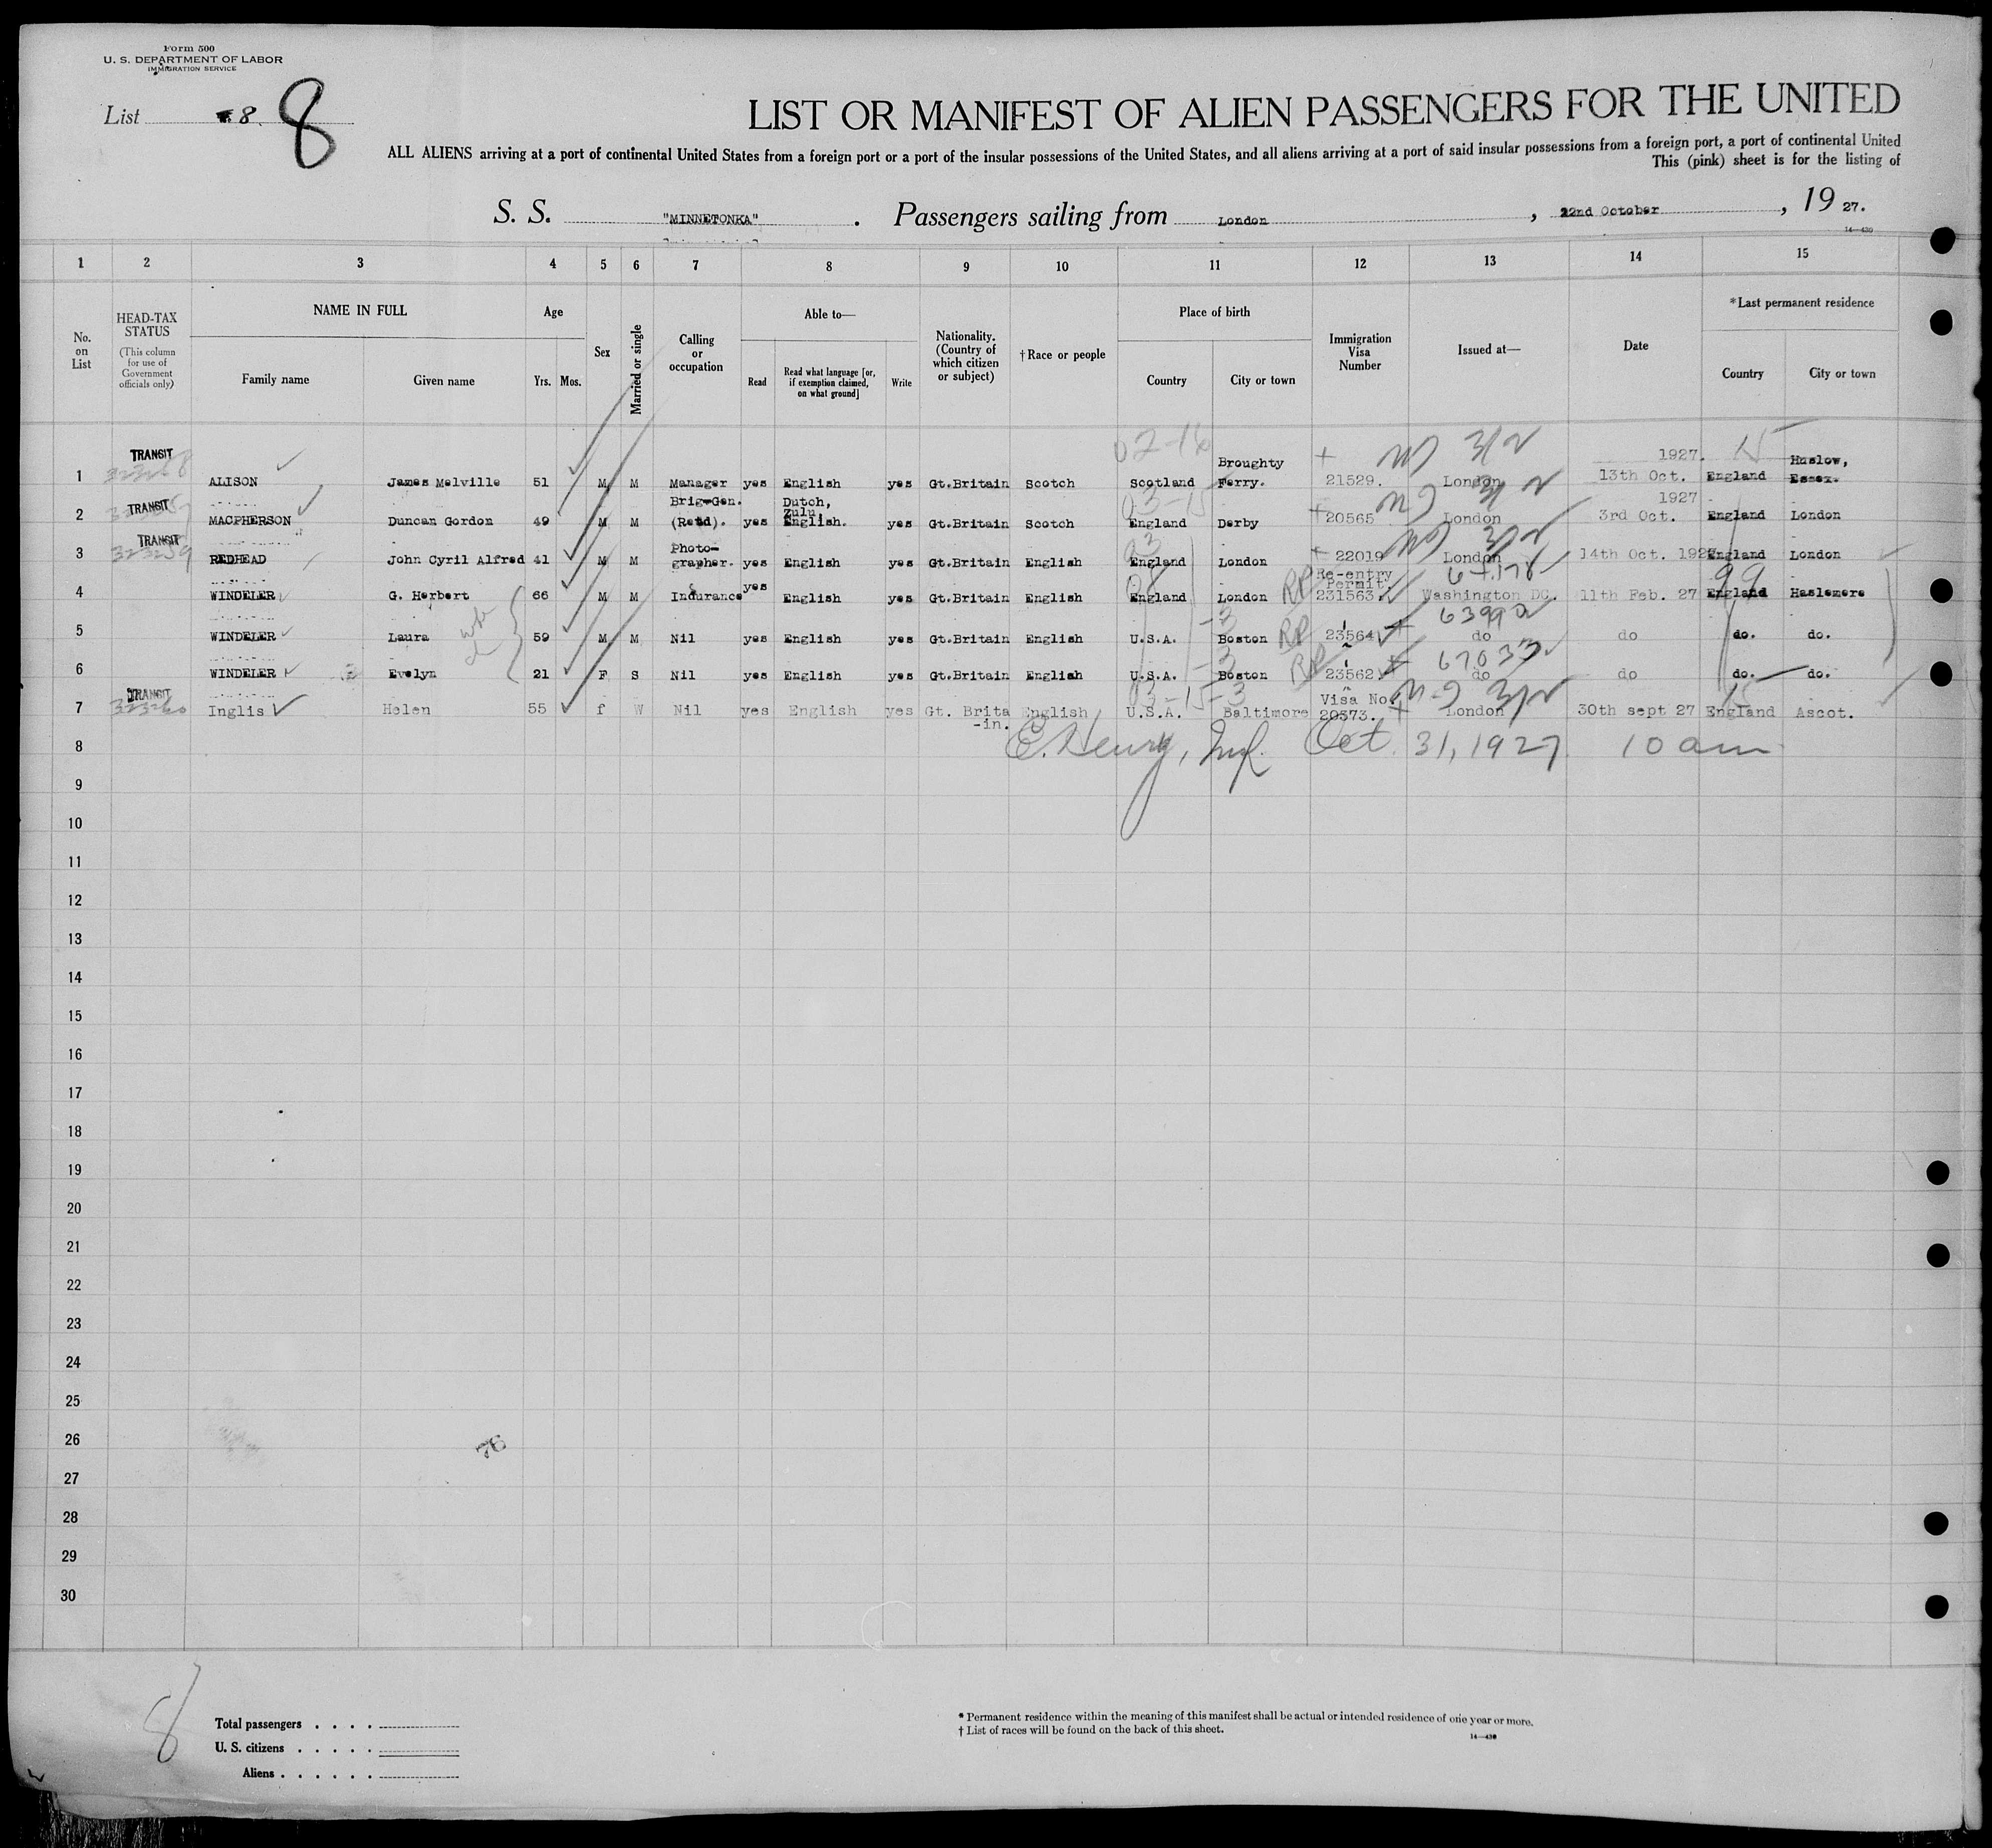 Form 500
U. S. DEPARTMENT OF LABOR
IMMIGRATION SERVICE
List 8. 8
LIST OR MANIFEST OF ALIEN PASSENGERS FOR THE UNITED
ALL ALIENS arriving at a port of continental United States from a foreign port or a port of the insular possessions of the United States, and all aliens arriving at a port of said insular possessions from a foreign port, a port of continental United
This (pink) sheet is for the listing of
S. S. "MINNETONKA". Passengers sailing from London, 22nd October, 19 27.
14—430
1 2 3 4 5 6 7 8 9 10 11 12 13 14 15
No. on List
HEAD-TAX STATUS (This column for use of Government officials only)
NAME IN FULL
Family name Given name
Age
Yrs. Mos.
Sex
Married or single
Calling or occupation
Able to—
Read
Read what language [or, if exemption claimed, on what ground]
Write
Nationality. (Country of which citizen or subject)
†Race or people
Place of birth
Country City or town
Immigration Visa Number
Issued at—
Date
*Last permanent residence
Country City or town
02-16 3/2 15
TRANSIT Broughty 1927. Huslow,
1 ALISON James Melville 51 M M Manager yes English yes Gt.Britain Scotch Scotland Ferry. 21529. London 13th Oct. England Essex.
TRANSIT Brig-Gen. Dutch, Zulu, 03-15 1927
2 MACPHERSON Duncan Gordon 49 M M (Retd). yes English. yes Gt.Britain Scotch England Derby 20565 London 3rd Oct. England London
TRANSIT 32359 Photo-
3 REDHEAD John Cyril Alfred 41 M M grapher. yes English yes Gt.Britain English England London 22019 London 14th Oct. 1927 England London
Re-entry Permit. 99
4 WINDELER G. Herbert 66 M M Indurance yes English yes Gt.Britain English England London RP 231563. Washington DC. 11th Feb. 27 England Haslemere
5 WINDELER Laura wife 59 M M Nil yes English yes Gt.Britain English U.S.A. Boston RP 23564 do do do. do.
6 WINDELER Evelyn 21 F S Nil yes English yes Gt.Britain English U.S.A. Boston RP 23562 67033 do do do. do.
TRANSIT 32360 03-15-3 Visa No.
7 Inglis Helen 55 f W Nil yes English yes Gt. Brita -in. English U.S.A. Baltimore 20373. London 30th sept 27 England Ascot.
8 E. Henry, Oct. 31, 1927. 10 am
9
10
11
12
13
14
15
16
17
18
19
20
21
22
23
24
25
26 76
27
28
29
30
8
Total passengers . . . .
U. S. citizens . . . . .
Aliens . . . . . .
* Permanent residence within the meaning of this manifest shall be actual or intended residence of one year or more.
† List of races will be found on the back of this sheet.
14—430